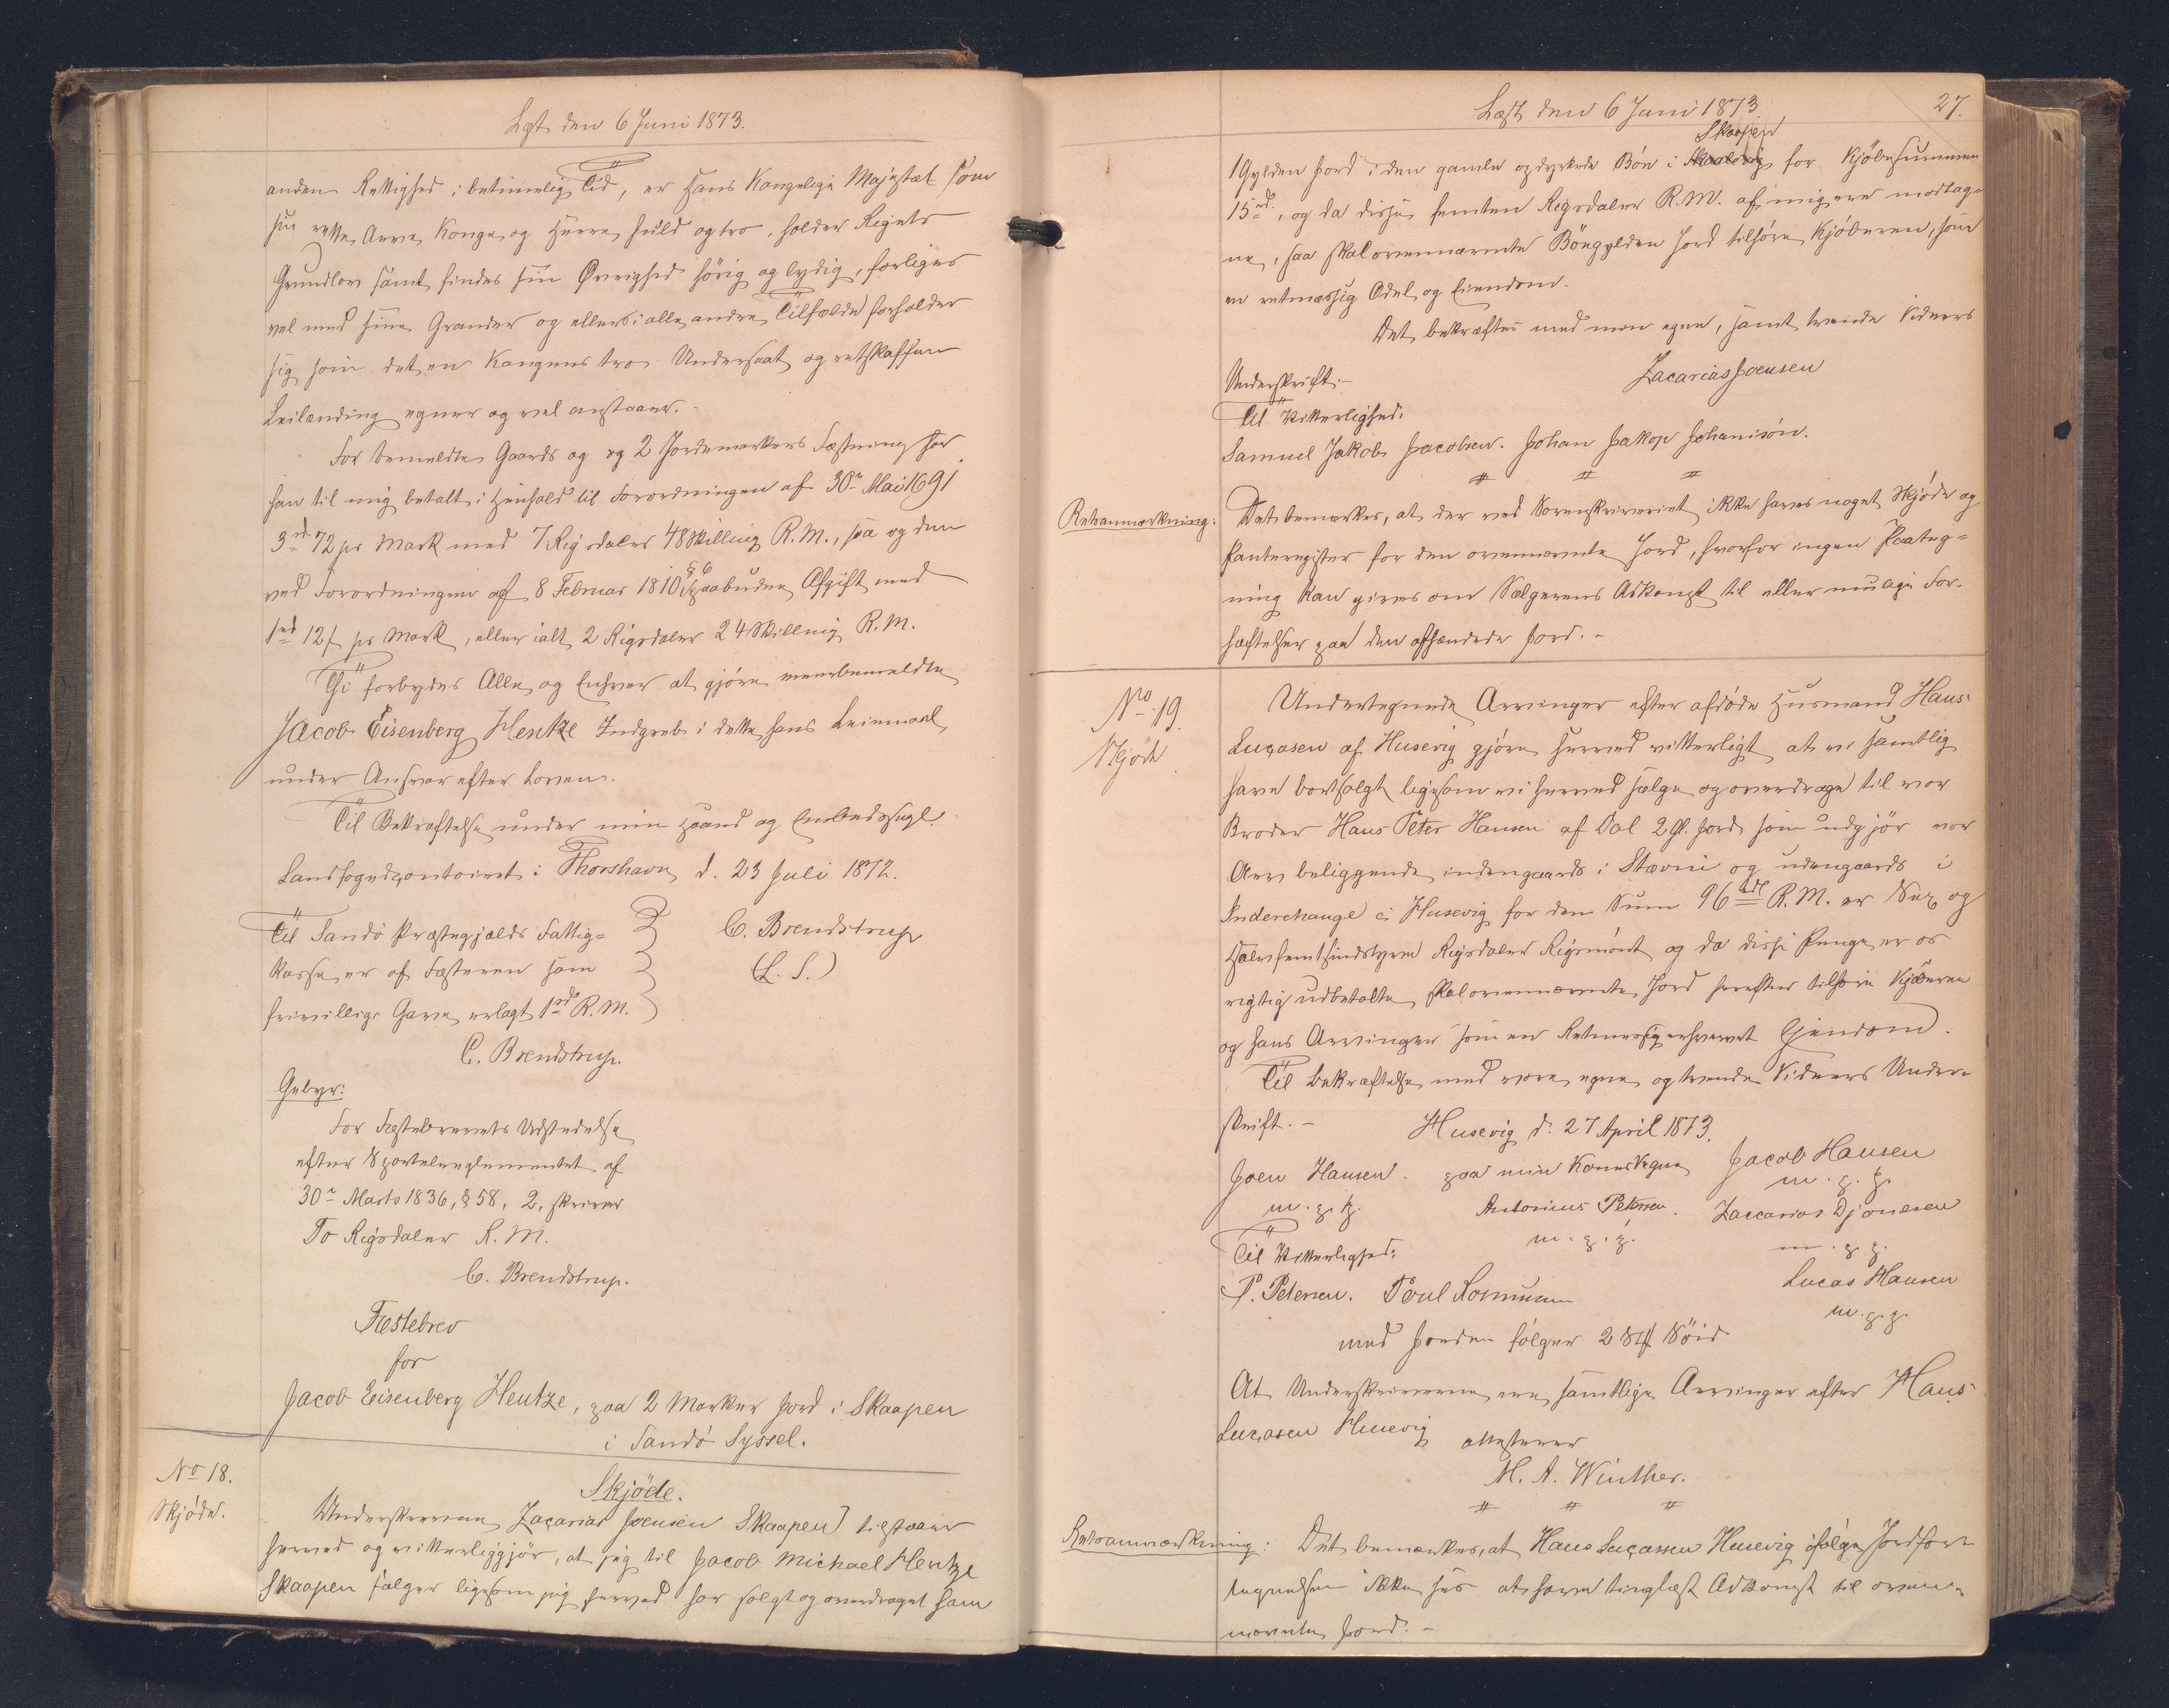 Læst den 6 Juni 1873.
anden Rettighed i betimelig Tid, er Hans Kongelige Majestæt som
sin rette Arve Konge og Herre huld og tro, holder Rigets
Grundlov samt findes sin Øvrighed hörig og lydig, forliges
vel med sine Grander og ellers i alle andre Tilfælde forholder
sig som det en Kongens tro Undersaat og retskaffen
Leilænding egner og vel anstaaer.
For bemeldte Gaards og 2 Jordemarkers Fæstning har
han til mig betalt i Henhold til Forordningen af 30te Mai 1691
3rd 72 pr Mark med 7 Rigsdaler 48 Skilling R.M., saa og den
ved Forordningen af 8 Februar 1810 § 6 paabudne Afgift med
1rd 12 f pr Mark, eller ialt 2 Rigsdaler 24 Skilling R.M.
Thi forbydes Alle og Enhver at gjöre meerbemeldte
Jacob Eisenberg Hentze Indgreb i dette hans Leiemaal
under Ansvar efter Loven.
Til Bekræftelse under min Haand og Embedssegl.
Landfogedcontoiret i Thorshavn, d. 23 Juli 1872.
Til Sandö Præstegjælds Fattig-
kasse er af Fæsteren som
frivillig Gave erlagt 1rd R.M.
C. Brendstrup
(L. S.)
C. Brendstrup.
Gebyr:
For Fæstebrevets Udstedelse
efter Sportelreglementet af
30te Marts 1836, § 58, 2, skriver
To Rigsdaler R.M.
C. Brendstrup.
Fæstebrev
for
Jacob Eisenberg Hentze, paa 2 Marker Jord i Skaapen
i Sandö Syssel.
No 18.
Skjöde.
Skjöde.
Underskrevne Zacarias Joensen Skaapen tilstaaer
herved og vitterliggjör, at jeg til Jacob Michael Hentze
Skaapen sælger ligesom jeg herved har solgt og overdraget ham
Læst den 6 Juni 1873
27.
Skaapen
1 Gylden Jord i den gamle opdyrkede Bön i for Kjöbesummen
15rd, og da disse femten Rigsdaler R.M. af mig ere modtag-
ne, saa skal ovennævnte Böngylden Jord tilhøre Kjöberen, som
en retmæssig Odel og Eiendom.
Det bekræftes med min egen, samt tvende Vidners
Underskrift.-
Zacarias Joensen
Til Vitterlighed:
Samuel Jakob Jacobsen. Johan Jakop Johanisön.
Retsanmærkning:
Det bemærkes, at der ved Sorenskriveriet ikke haves noget Skjöde og
Panteregister for den ovennævnte Jord, hvorfor ingen Paateg-
ning kan gives om Sælgerens Adkomst til eller mulige For-
hæftelser paa den afhændede Jord.-
No. 19.
Skjöde
Undertegnede Arvinger efter afdöde Husmand Hans
Lucasen af Husevig gjöre herved vitterligt at vi samtlig
have bortsolgt ligesom vi herved sælge og overdrage til vor
Broder Hans Peter Hansen af Dal 2 Gl. Jord som udgjör vor
Arv beliggende indengaards i Stævni og udengaards i
Inderehauge i Husevig for den Sum 96 rdl R.M. er Sex og
Halvfemtsindstyve Rigsdaler Rigsmönt og da disse Penge er os
rigtig udbetalte skal ovennævnte Jord herefter tilhöre Kjöberen
og hans Arvinger som en Retmæssig erhvervet Ejendom.
Til Bekræftelse med vore egne og tvende Vidners Under-
skrift.-
Husevig d. 27 April 1873.
Joen Hansen. paa min Kones Vegne Jacob Hansen
m. p. p. m. p. p.
Antonius Petersen. Zaccarias Djonesen
m. p. p. m. p. p.
Til Vitterlighed:
P. Petersen. Poul Rasmussen
Lucas Hansen
m. p. p.
med Jorden fölger 2 Söid
At Underskriverne ere samtlige Arvinger efter Hans
Lucasen Husevig attesterer
M. A. Winther.
Retsanmærkning:
Det bemærkes, at Hans Lucassen Husevig ifölge Jordfor-
tegnelsen ikke sees at have tinglæst Adkomst til oven-
nævnte Jord.-